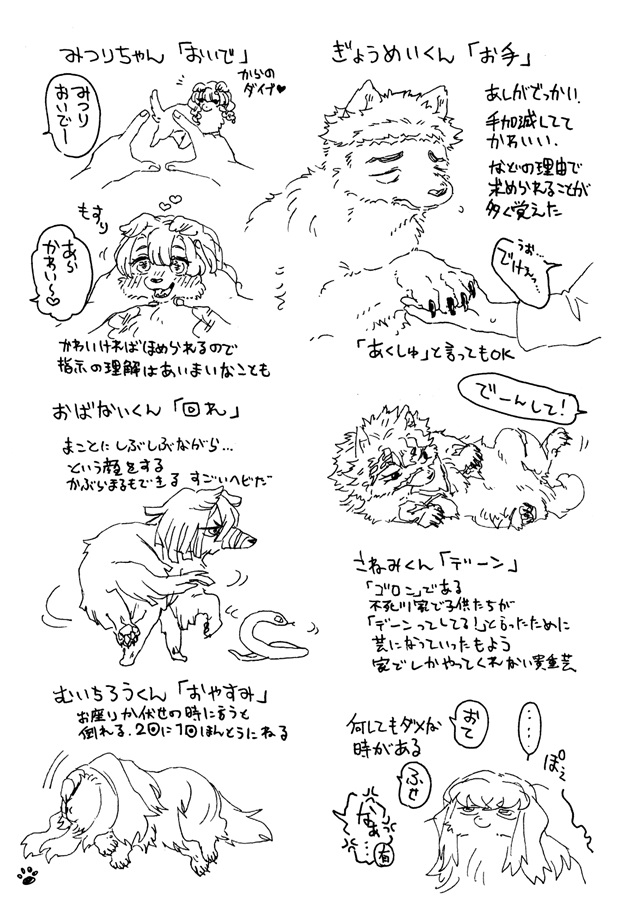 みつりちゃん「おいで」
からの
ダイブ♥
みつり
おいでー
もすり
あら
かわい〜♡
かわいければほめられるので
指示の理解はあいまいなことも
ぎょうめいくん「お手」
あしがでっかい.
手加減してて
かわいい.
などの理由で
求められることが
多く覚えた
うお
でけぇっ
「あくしゅ」と言ってもOK
おばないくん「回れ」
まことにしぶしぶながら…
という顔をする
かぶらまるもできる すごいヘビだ
でーんして!
さねみくん「デーン」
「ゴロン」である
不死川家で子供たちが
「デーンってしてる!」と言ったために
芸になっていったもよう
家でしかやってくれない貴重芸
むいちろうくん「おやすみ」
お座りか伏せの時に言うと
倒れる.2回に1回ほんとうにねる
何してもダメな
時がある
おて
ふせ
……
ぽえ
なぁっ
…
有